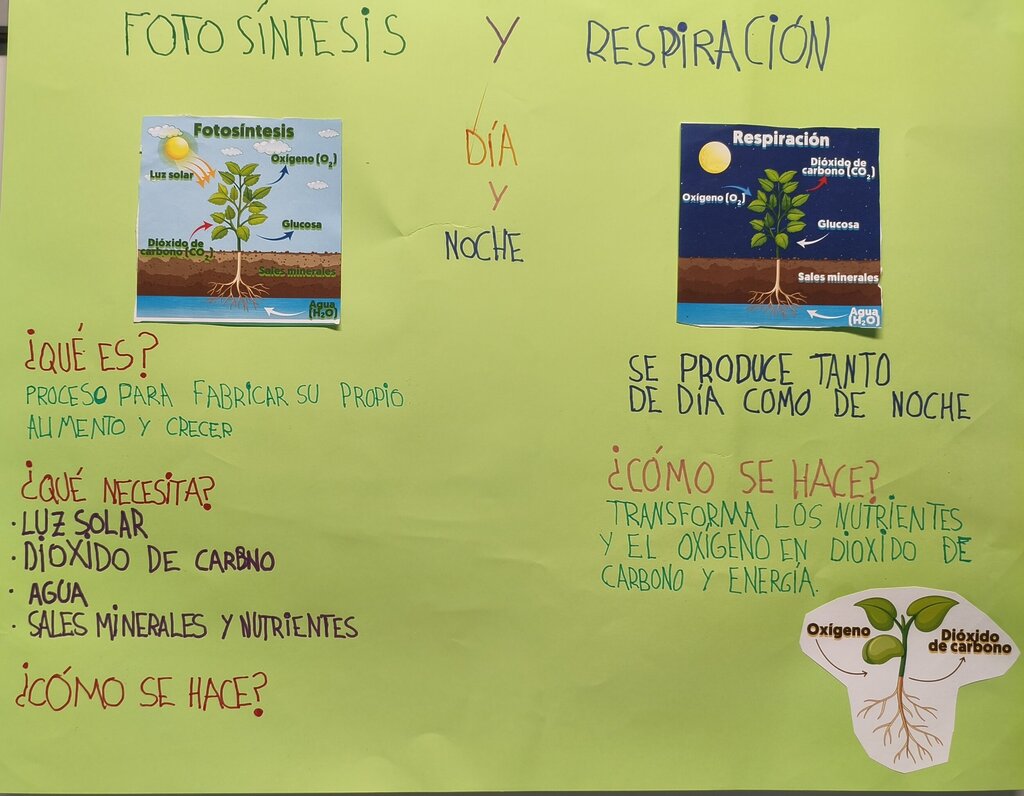 FOTOSÍNTESIS Y RESPIRACIÓN
DÍA
Y
NOCHE
Fotosíntesis
Oxígeno (O₂)
Luz solar
Glucosa
Dióxido de
carbono (CO₂)
Sales minerales
Agua
(H₂O)
Respiración
Dióxido de
carbono (CO₂)
Oxígeno (O₂)
Glucosa
Sales minerales
Agua
(H₂O)
¿QUÉ ES?
PROCESO PARA FABRICAR SU PROPIO
ALIMENTO Y CRECER
¿QUÉ NECESITA?
· LUZ SOLAR
· DIOXIDO DE CARBNO
· AGUA
· SALES MINERALES Y NUTRIENTES
¿CÓMO SE HACE?
SE PRODUCE TANTO
DE DÍA COMO DE NOCHE
¿CÓMO SE HACE?
TRANSFORMA LOS NUTRIENTES
Y EL OXÍGENO EN DIOXIDO DE
CARBONO Y ENERGÍA.
Oxígeno
Dióxido
de carbono